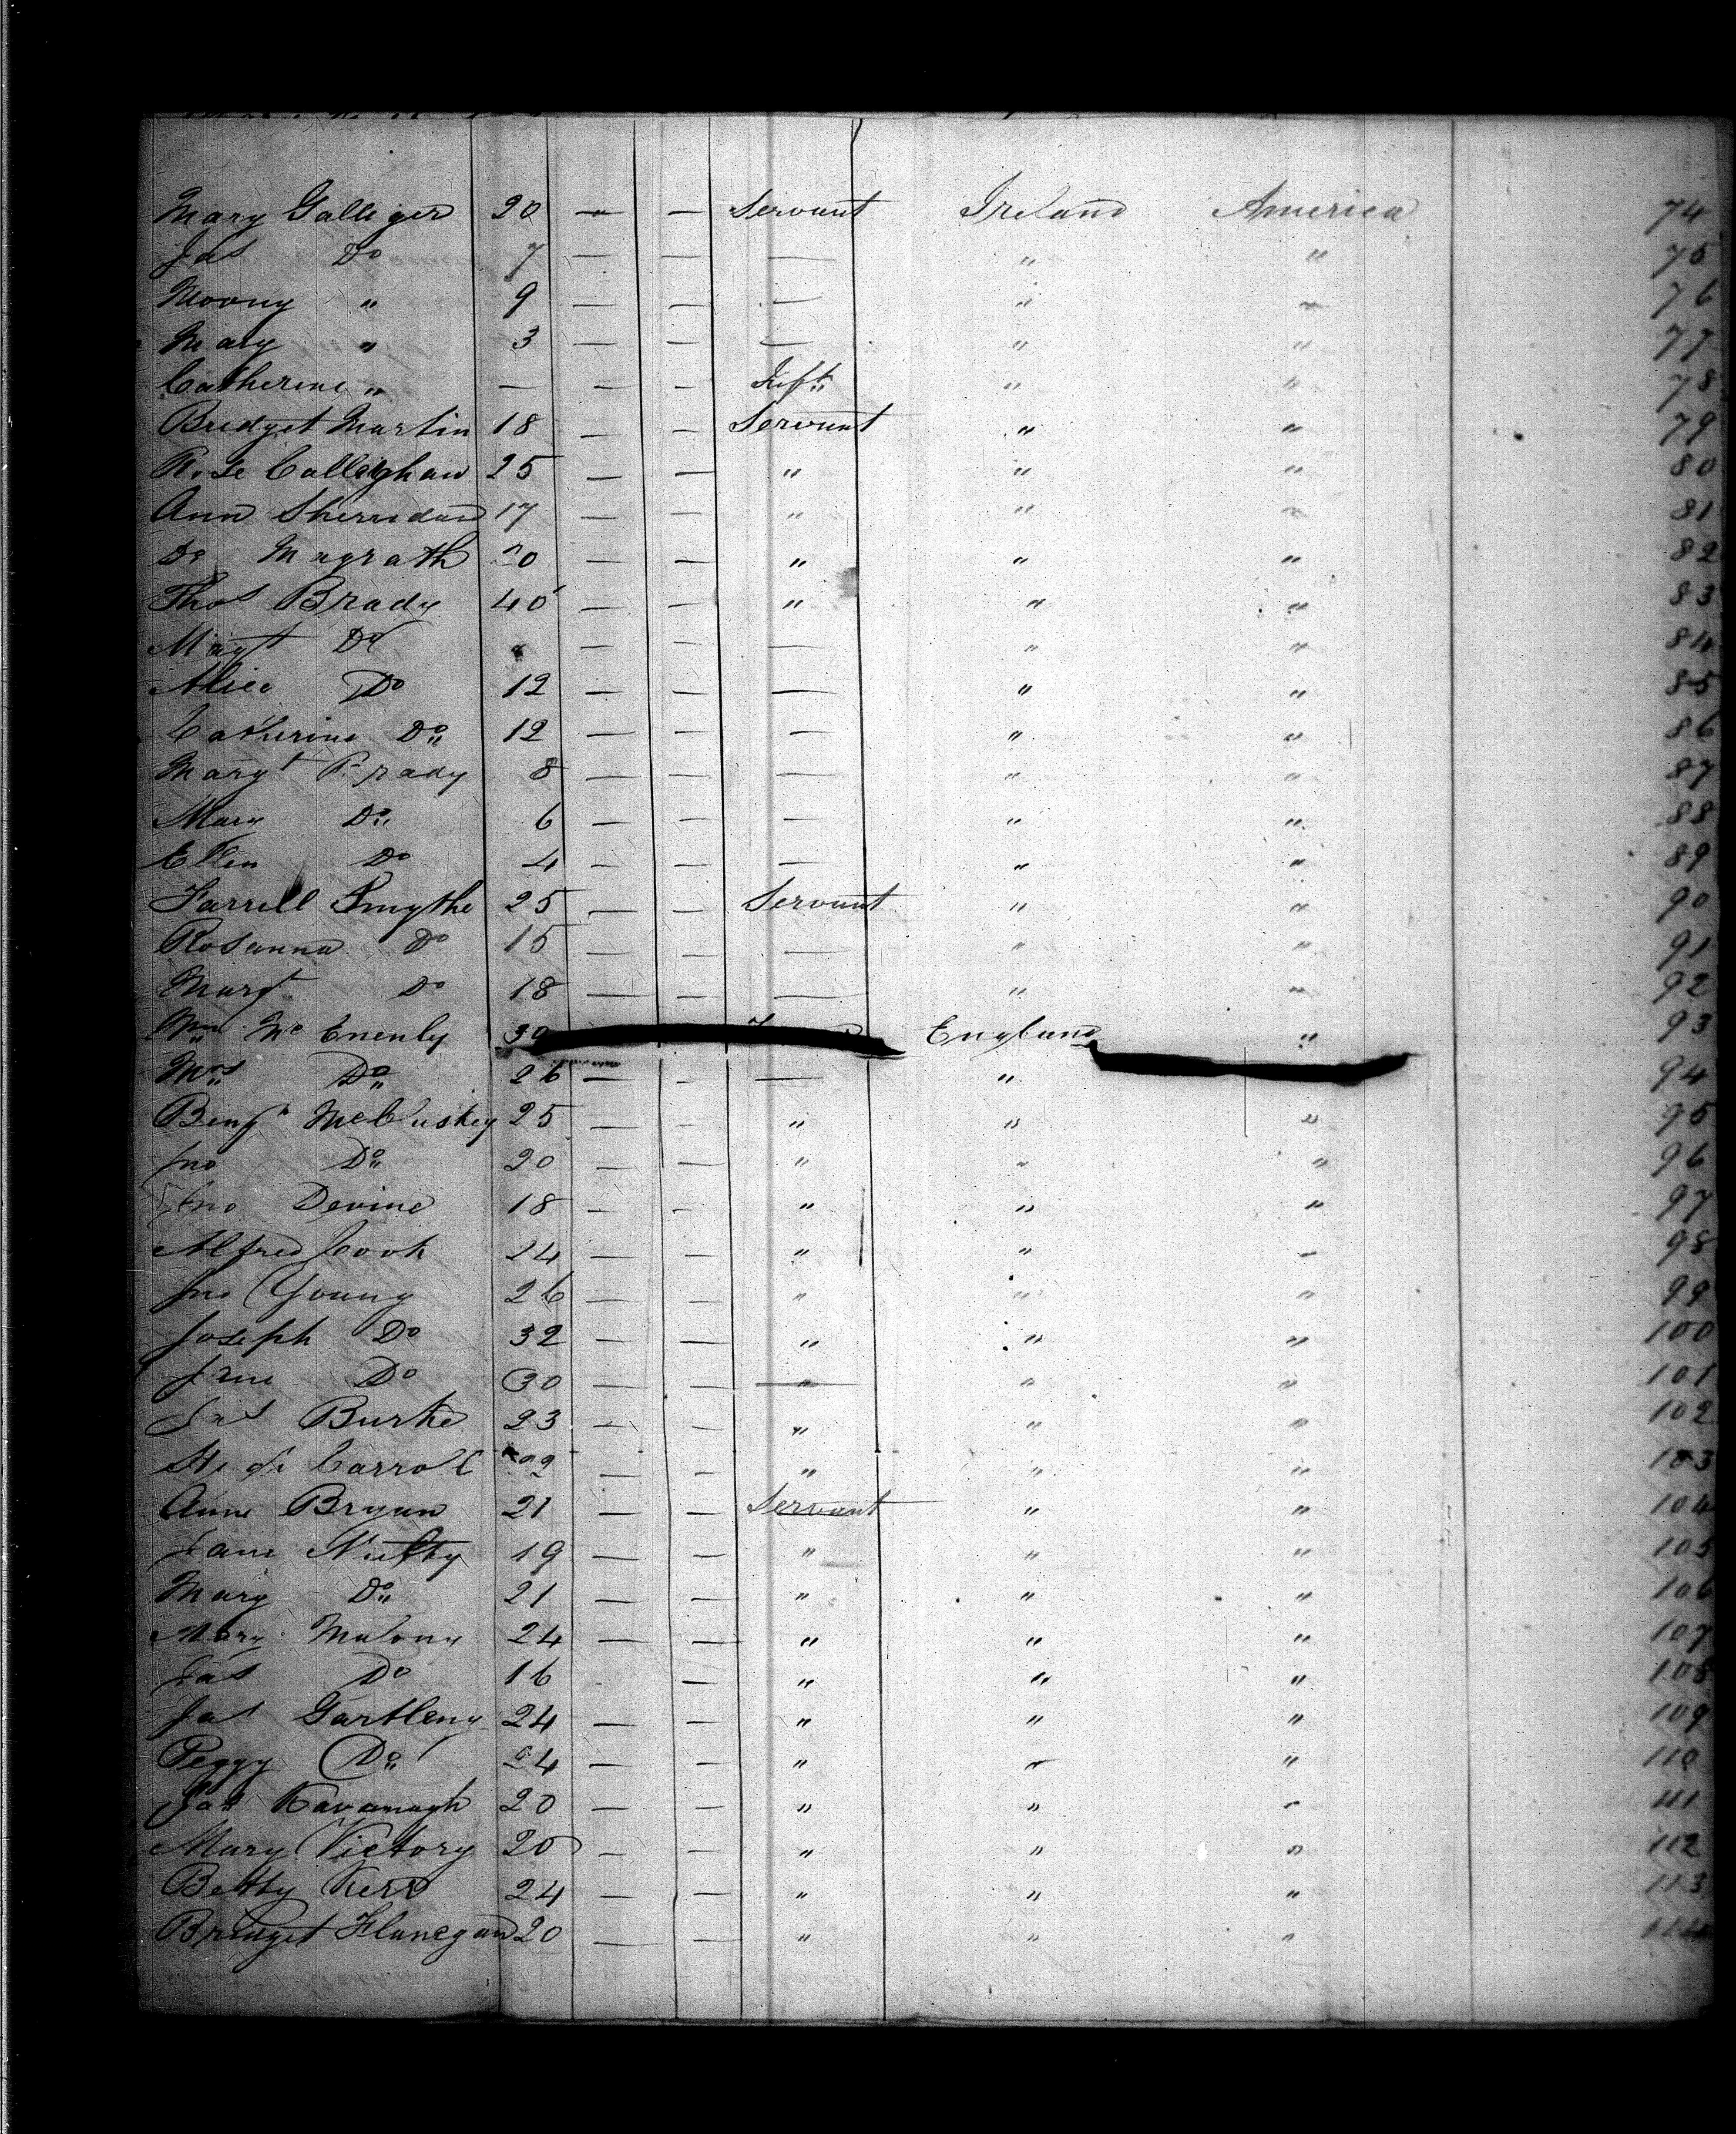 Mary Galliger 20 — — Servant Ireland America 74
Jas Do 7 — — — " " 75
Moony " 9 — — — " " 76
Mary " 3 — — — " " 77
Catherine " — — — Inft " " 78
Bridget Martin 18 — — Servant " " 79
Rose Callaghan 25 — — " " " 80
Ann Sherridan 17 — — " " " 81
Do Magrath — — " " " 82
Thos Brady 40 — — " " " 83
Magt Do " — — — " " 84
Alice Do 12 — — — " " 85
Catherine Do 12 — — — " " 86
Margt Brady 8 — — — " " 87
Mary Do 6 — — — " " 88
Ellen Do 4 — — — " " 89
Farrell Smythe 25 — — Servant " " 90
Rosanna Do 15 — — — " " 91
Margt Do 18 — — — " " 92
Wm Mc Enenly 30 England " 93
Mrs Do 26 — — — " 94
Benjn McCuskey 25 — — " " " 95
Jno Do 20 — — " " " 96
Jno Devine 18 — — " " " 97
Alfred Cook 24 — — " " " 98
Jno Young 26 — — " " " 99
Joseph Do 32 — — " " " 100
Jane Do 30 — — — " " 101
Jas Burke 23 — — " " " 102
Carroll 22 — — " " " 103
Anne Bryan 21 — — Servant " " 104
Jane Nulty 19 — — " " " 105
Mary Do 21 — — " " " 106
Mary Malony 24 — — " " " 107
Jas Do 16 — " " " 108
Jas Gartleny 24 — — " " " 109
Peggy Do 24 — — " " " 110
Jas Kavanagh 20 — — " " " 111
Mary Victory 20 — — " " " 112
Betty Kerr 24 — — " " " 113
Bridget Flanegan 20 — — " " " 114